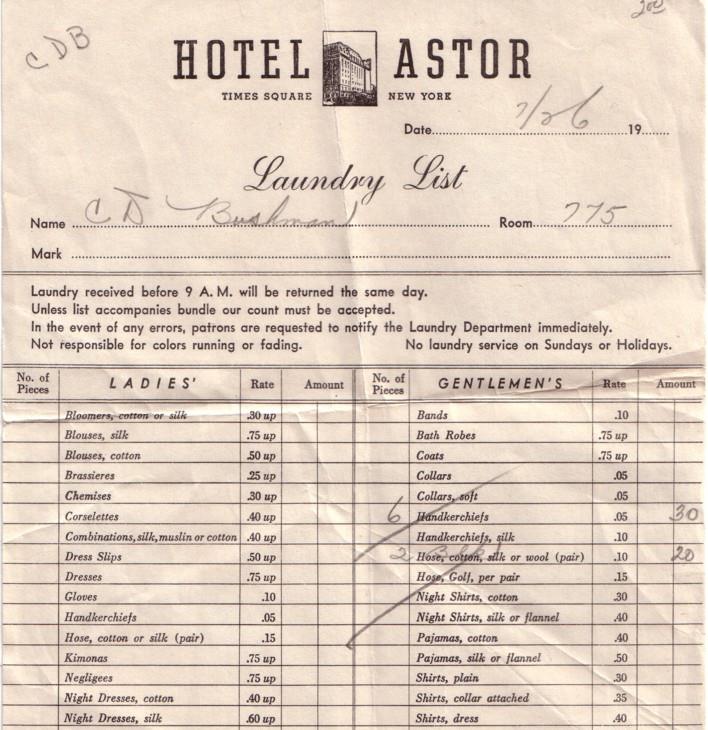 200
CDB
HOTEL ASTOR
TIMES SQUARE NEW YORK
Date 7/26 19
Laundry List
Name C D Bushman Room 775
Mark
Laundry received before 9 A. M. will be returned the same day.
Unless list accompanies bundle our count must be accepted.
In the event of any errors, patrons are requested to notify the Laundry Department immediately.
Not responsible for colors running or fading. No laundry service on Sundays or Holidays.
No. of Pieces LADIES' Rate Amount No. of Pieces GENTLEMEN'S Rate Amount
Bloomers, cotton or silk .30 up Bands .10
Blouses, silk .75 up Bath Robes .75 up
Blouses, cotton .50 up Coats .75 up
Brassieres .25 up Collars .05
Chemises .30 up Collars, soft .05
Corselettes .40 up 6 Handkerchiefs .05 30
Combinations, silk, muslin or cotton .40 up Handkerchiefs, silk .10
Dress Slips .50 up 2 Hose, cotton, silk or wool (pair) .10 20
Dresses .75 up Hose, Golf, per pair .15
Gloves .10 Night Shirts, cotton .30
Handkerchiefs .05 Night Shirts, silk or flannel .40
Hose, cotton or silk (pair) .15 Pajamas, cotton .40
Kimonas .75 up Pajamas, silk or flannel .50
Negligees .75 up Shirts, plain .30
Night Dresses, cotton .40 up Shirts, collar attached .35
Night Dresses, silk .60 up Shirts, dress .40